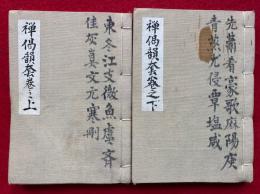 先蕭肴豪歌麻陽庚
青蒸尤侵覃塩咸
禅偈韻套巻之下
東冬江支微魚虞斉
佳灰真文元寒刪
禅偈韻套巻之上